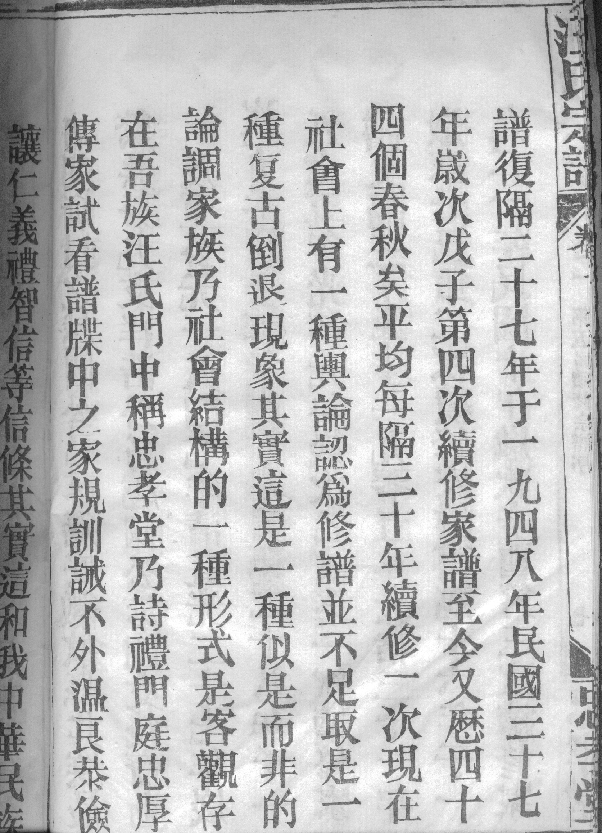 汪氏宗譜
譜復隔二十七年于一九四八年民國三十七
年歲次戊子第四次續修家譜至今又歷四十
四個春秋矣平均每隔三十年續修一次現在
社會上有一種輿論認爲修譜並不足取是一
種复古倒退現象其實這是一種似是而非的
論調家族乃社會結構的一種形式是客觀存
在吾族汪氏門中稱忠孝堂乃詩禮門庭忠厚
傳家試看譜牒中之家規訓誡不外温良恭儉
讓仁義禮智信等信條其實這和我中華民族
忠孝堂